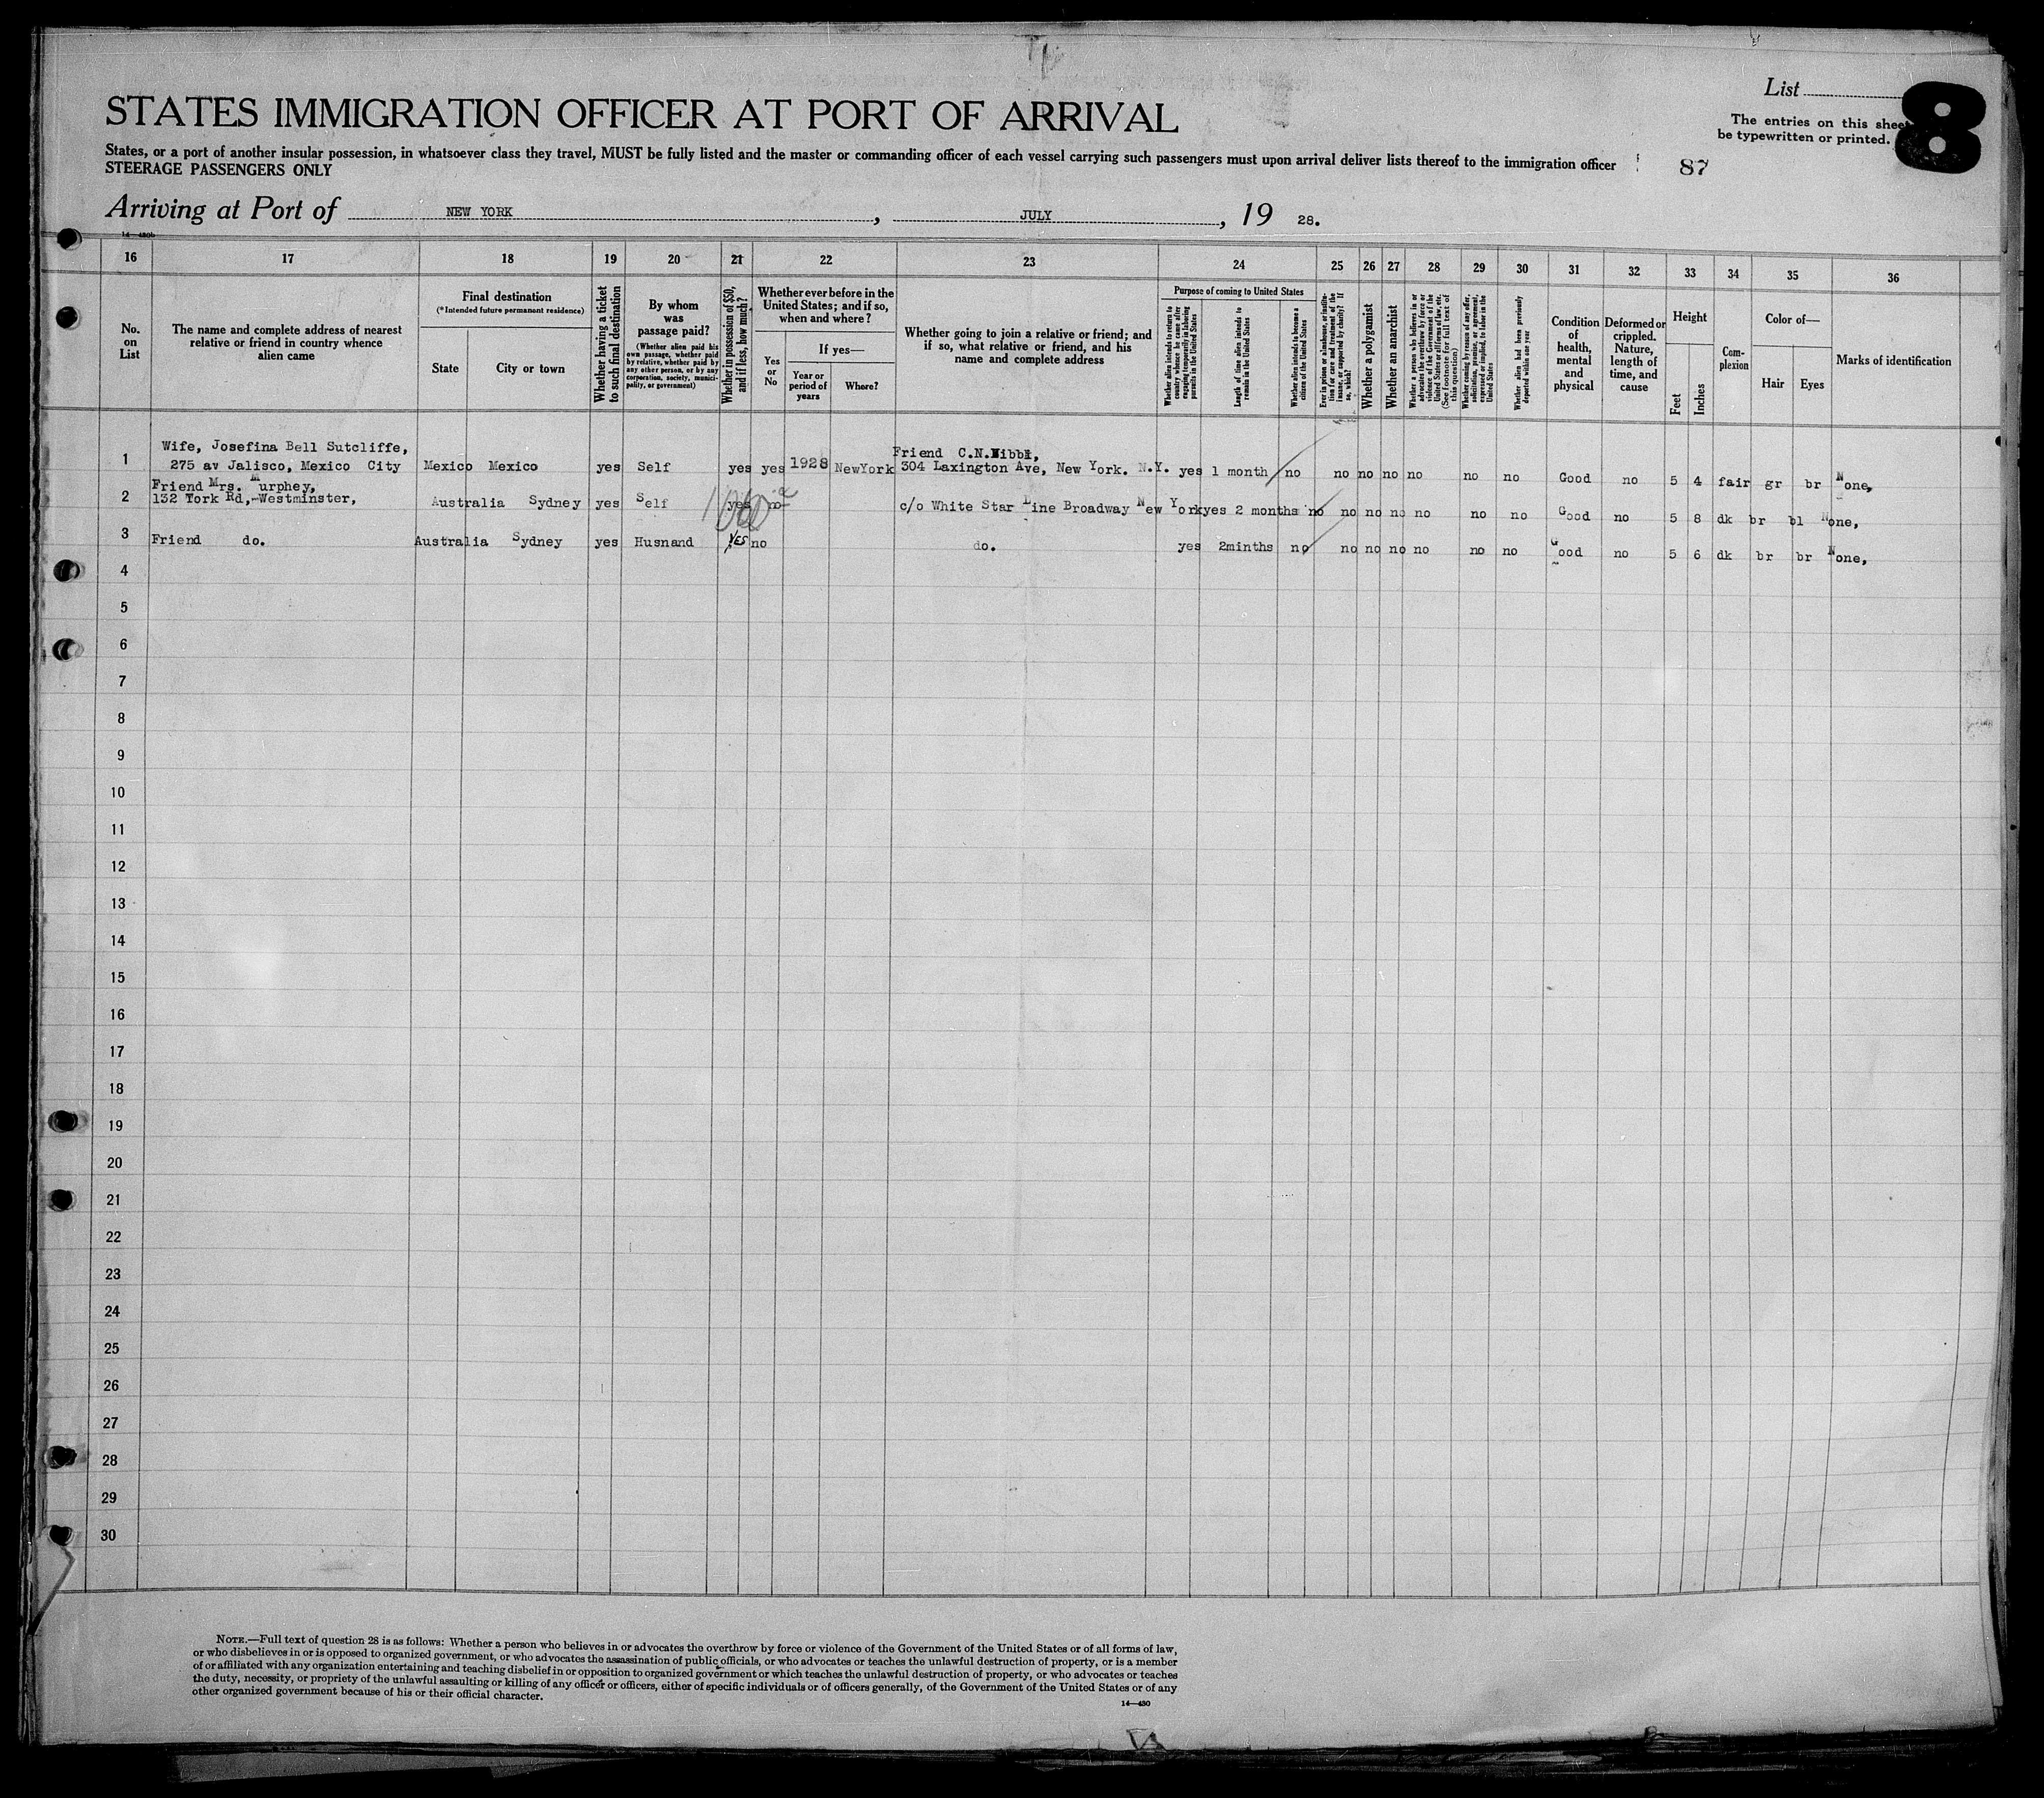 List
8
STATES IMMIGRATION OFFICER AT PORT OF ARRIVAL
The entries on this sheet
be typewritten or printed.
States, or a port of another insular possession, in whatsoever class they travel, MUST be fully listed and the master or commanding officer of each vessel carrying such passengers must upon arrival deliver lists thereof to the immigration officer
87
STEERAGE PASSENGERS ONLY
Arriving at Port of NEW YORK, JULY, 19 28.
14—430b
16 17 18 19 20 21 22 23 24 25 26 27 28 29 30 31 32 33 34 35 36
No. on List
The name and complete address of nearest relative or friend in country whence alien came
Final destination
(*Intended future permanent residence)
State
City or town
Whether having a ticket to such final destination
By whom was passage paid?
(Whether alien paid his own passage, whether paid by relative, whether paid by any other person, or by any corporation, society, municipality, or government)
Whether in possession of $50, and if less, how much?
Whether ever before in the United States; and if so, when and where?
Yes or No
If yes—
Year or period of years
Where?
Whether going to join a relative or friend; and if so, what relative or friend, and his name and complete address
Purpose of coming to United States
Whether alien intends to return to country whence he came after engaging temporarily in laboring pursuits in the United States
Length of time alien intends to remain in the United States
Whether alien intends to become a citizen of the United States
Ever in prison or almshouse, or institution for care and treatment of the insane, or supported by charity? If so, which?
Whether a polygamist
Whether an anarchist
Whether a person who believes in or advocates the overthrow by force or violence of the Government of the United States or all forms of law, etc. (See footnote for full text of this question)
Whether coming by reason of any offer, solicitation, promise, or agreement, expressed or implied, to labor in the United States
Whether alien had been previously deported within one year
Condition of health, mental and physical
Deformed or crippled. Nature, length of time, and cause
Height
Feet
Inches
Complexion
Color of—
Hair
Eyes
Marks of identification
Wife, Josefina Bell Sutcliffe,
1 275 av Jalisco, Mexico City Mexico Mexico yes Self yes yes 1928 NewYork
Friend C.N.
304 Laxington Ave, New York. N.Y. yes 1 month no no no no no no no Good no 5 4 fair gr br None,
Friend Mrs. Murphey,
2 132 York Rd, Westminster, Australia Sydney yes Self yes no c/o White Star Line Broadway New York yes 2 months no no no no no no no Good no 5 8 dk br bl None,
3 Friend do. Australia Sydney yes Husnand YES no do. yes 2minths no no no no no no no Good no 5 6 dk br br None,
4
5
6
7
8
9
10
11
12
13
14
15
16
17
18
19
20
21
22
23
24
25
26
27
28
29
30
NOTE.—Full text of question 28 is as follows: Whether a person who believes in or advocates the overthrow by force or violence of the Government of the United States or of all forms of law,
or who disbelieves in or is opposed to organized government, or who advocates the assassination of public officials, or who advocates or teaches the unlawful destruction of property, or is a member
of or affiliated with any organization entertaining and teaching disbelief in or opposition to organized government or which teaches the unlawful destruction of property, or who advocates or teaches
the duty, necessity, or propriety of the unlawful assaulting or killing of any officer or officers, either of specific individuals or of officers generally, of the Government of the United States or of any
other organized government because of his or their official character.
14—430